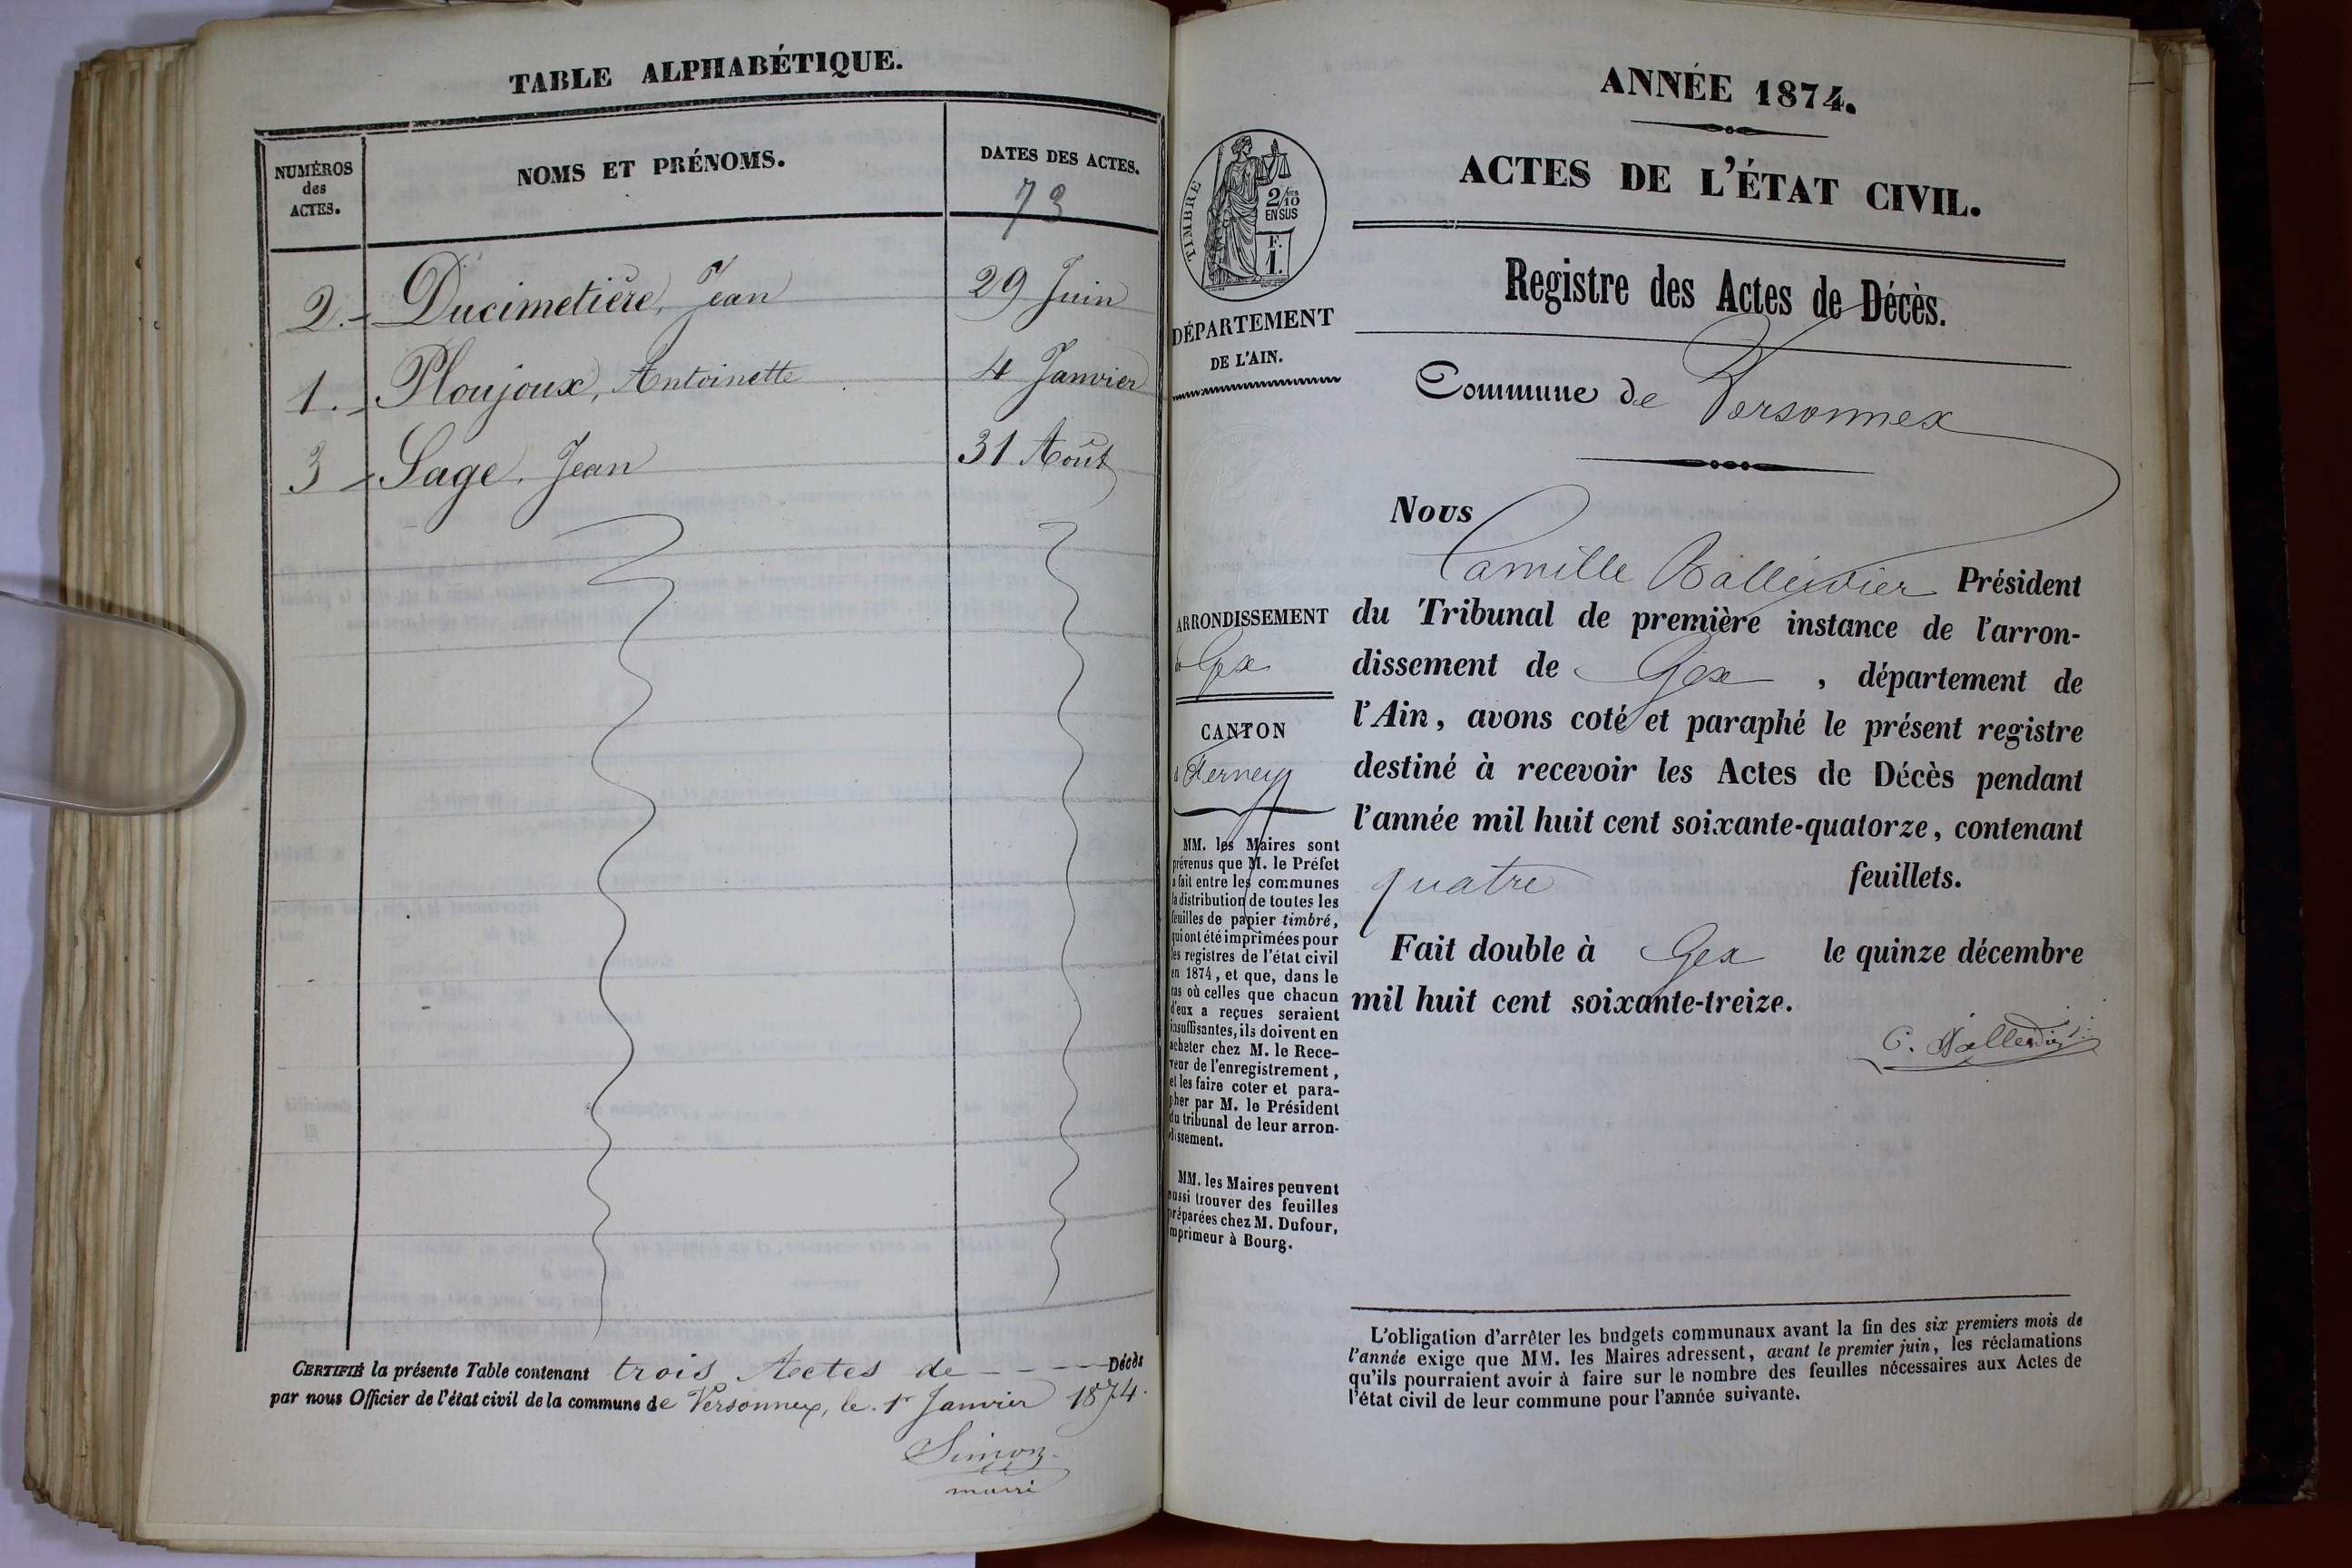 TABLE ALPHABÉTIQUE.
NUMÉROS
des
ACTES.
NOMS ET PRÉNOMS.
DATES DES ACTES.
73
2. - Ducimetière, Jean 29 Juin
1. - Ploujoux, Antoinette 4 Janvier
3 - Sage, Jean 31 Août
CERTIFIÉ la présente Table contenant trois Actes de - - - Décès
par nous Officier de l'état civil de la commune de Versonnex, le 1r Janvier 1874.
Simon
maire
ANNÉE 1874.
ACTES DE L'ÉTAT CIVIL.
TIMBRE
2/10es
EN SUS
F.
1.
DÉPARTEMENT
DE L'AIN.
ARRONDISSEMENT
de Gex
CANTON
d Ferney
MM. les Maires sont
prévenus que M. le Préfet
a fait entre les communes
la distribution de toutes les
feuilles de papier timbré,
qui ont été imprimées pour
les registres de l'état civil
en 1874, et que, dans le
cas où celles que chacun
d'eux a reçues seraient
insuffisantes, ils doivent en
acheter chez M. le Rece-
veur de l'enregistrement,
et les faire coter et para-
pher par M. le Président
du tribunal de leur arron-
dissement.
MM. les Maires peuvent
aussi trouver des feuilles
préparées chez M. Dufour,
imprimeur à Bourg.
Registre des Actes de Décès.
Commune de Versonnex
Nous
Camille Président
du Tribunal de première instance de l'arron-
dissement de Gex, département de
l'Ain, avons coté et paraphé le présent registre
destiné à recevoir les Actes de Décès pendant
l'année mil huit cent soixante-quatorze, contenant
quatre feuillets.
Fait double à Gex le quinze décembre
mil huit cent soixante-treize.
L'obligation d'arrêter les budgets communaux avant la fin des six premiers mois de
l'année exige que MM. les Maires adressent, avant le premier juin, les réclamations
qu'ils pourraient avoir à faire sur le nombre des feuilles nécessaires aux Actes de
l'état civil de leur commune pour l'année suivante.